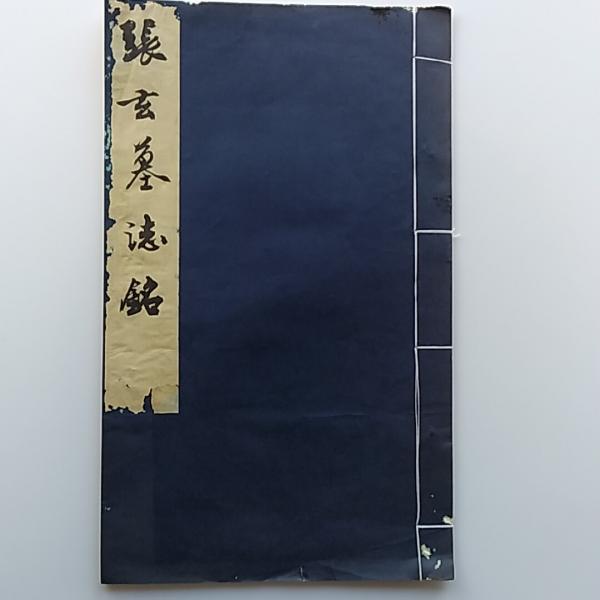 張玄墓誌銘